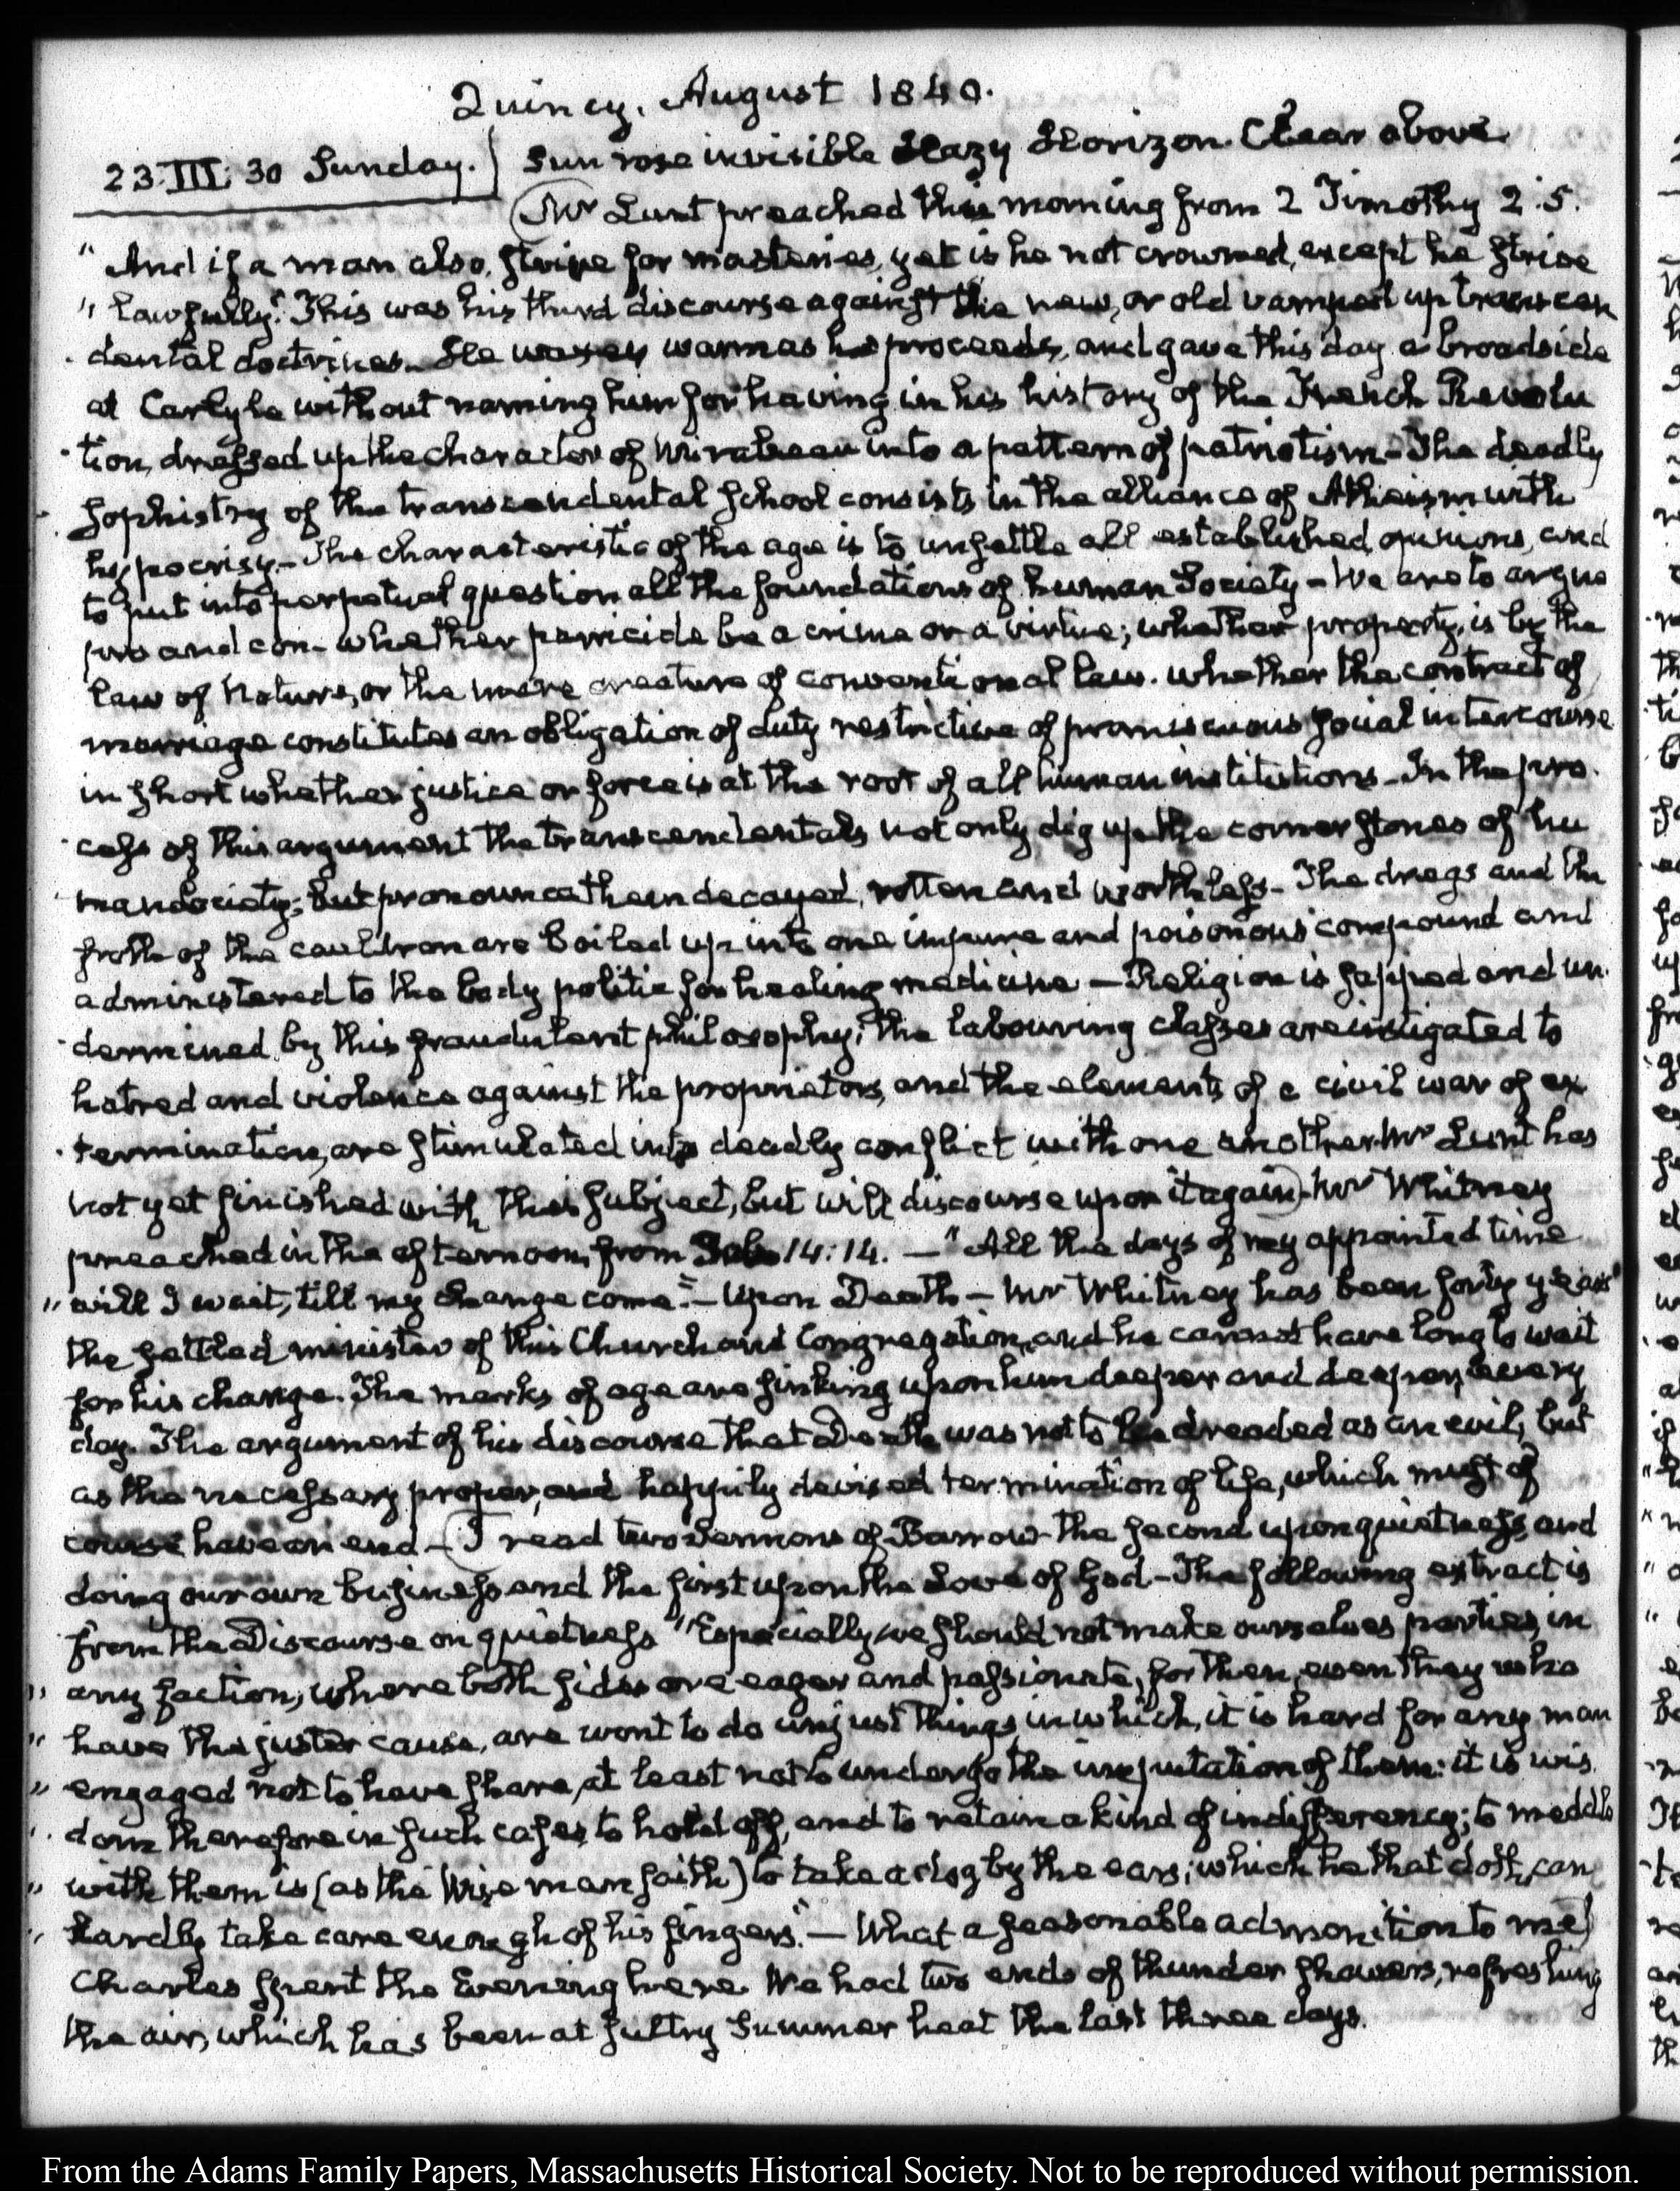 Quincy. August 1840.
23. III: 30 Sunday. Sun rose invisible Hazy Horizon. Clear above
Mr Lunt preached this morning from 2 Timothy 2.5.
" And if a man also, strive for masteries, yet is he not crowned, except he strive
" lawfully." This was his third discourse against the new, or old vamped up transcen
dental doctrines. He waxes warm as he proceeds, and gave this day a broadside
at Carlyle without naming him for having in his history of the French Revolu
tion, dressed up the character of Mirabeau into a pattern of patriotism – The deadly
sophistry of the transcendental school consists in the alliance of Atheism with
hypocrisy. – The characteristic of the age is to unsettle all established opinions, and
to put into perpetual question all the foundations of human Society – We are to argue
pro and con – whether parricide be a crime or a virtue; whether property, is by the
law of Nature, or the mere creature of conventional law. whether the contract of
marriage constitutes an obligation of duty restrictive of promiscuous social intercourse
in short whether justice or force is at the root of all human institutions – In the pro
cess of this argument the transcendentals not only dig up the corner stones of hu
man Society; but pronounce them decayed, rotten and worthless – The dregs and the
froth of the cauldron are boiled up into one impure and poisonous compound and
administered to the body politic for healing medicine – Religion is sapped and un
dermined by this fraudulent philosophy; the labouring classes are instigated to
hatred and violence against the proprietors, and the elements of a civil war of ex
termination, are stimulated into deadly conflict with one another. Mr Lunt has
not yet finished with this subject, but will discourse upon it again) – Mr Whitney
preached in the afternoon, from Job 14:14. – "All the days of my appointed time
" will I wait, till my change come." – Upon Death – Mr Whitney has been forty years
the settled minister of this Church and Congregation, and he cannot have long to wait
for his change. The marks of age are sinking upon him deeper and deeper, every
day. The argument of his discourse that Death was not to be dreaded as an evil, but
as the necessary proper, and happily devised termination of life, which must of
course have an end – (I read two Sermons of Barrow – the second upon quietness, and
doing our own business and the first upon the Love of God – The following extract is
from the Discourse on quietness "Especially we should not make ourselves parties, in
" any faction, where both sides are eager and passionate, for then, even they who
" have the juster cause, are wont to do unjust things in which, it is hard for any man
" engaged not to have share, at least not to undergo the imputation of them: it is wis
" dom therefore in such cases, to hold off, and to retain a kind of indifferency; to meddle
" with them is (as the Wise man saith) to take a dog by the ears; which he that doth, can
" hardly take care enough of his fingers." – What a seasonable admonition to me)
Charles spent the Evening here. We had two ends of thunder showers, refreshing
the air, which has been at sultry Summer heat the last three days.
From the Adams Family Papers, Massachusetts Historical Society. Not to be reproduced without permission.